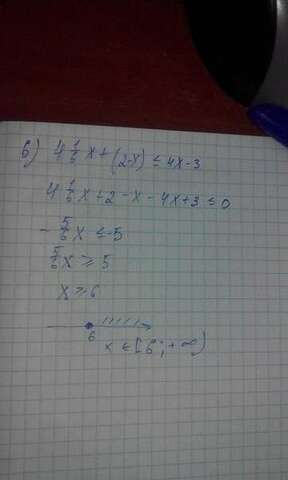 6) 4 1/6 x + (2-x) ≤ 4x-3
4 1/6 x + 2 - x - 4x + 3 ≤ 0
- 5/6 x ≤ -5
5/6 x ≥ 5
x ≥ 6
6
x ∈ [6; +∞)